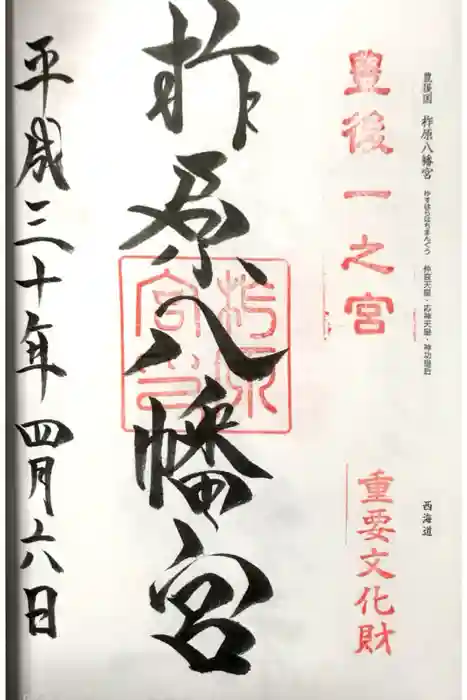 豊後国 柞原八幡宮 ゆすはらはちまんぐう 仲哀天皇・応神天皇・神功皇后
西海道
豊後一之宮
重要文化財
柞原八幡宮
平成三十年四月六日